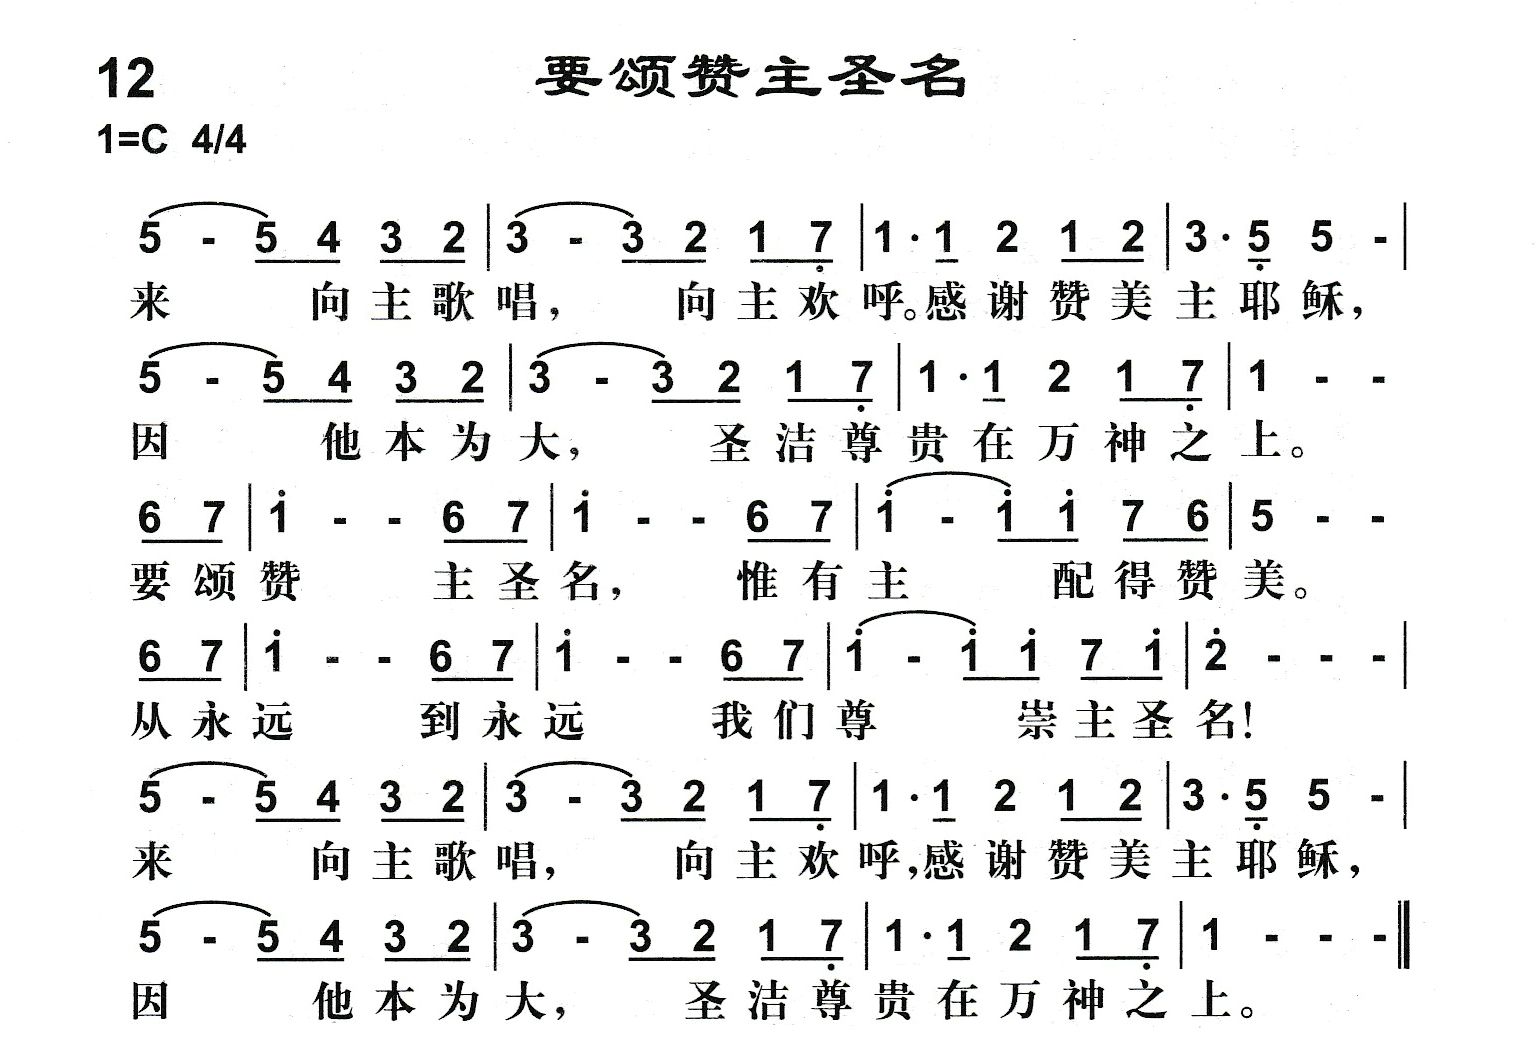 12 要颂赞主圣名
1=C 4/4
5 - 5 4 3 2 | 3 - 3 2 1 7̣ | 1 · 1 2 1 2 | 3 · 5̣ 5 - |
来 向主歌唱, 向主欢呼。感谢赞美主耶稣,
5 - 5 4 3 2 | 3 - 3 2 1 7̣ | 1 · 1 2 1 7̣ | 1 - -
因 他本为大, 圣洁尊贵在万神之上。
6 7 | 1̇ - - 6 7 | 1̇ - - 6 7 | 1̇ - 1̇ 1̇ 7 6 | 5 - -
要颂赞 主圣名, 惟有主 配得赞美。
6 7 | 1̇ - - 6 7 | 1̇ - - 6 7 | 1̇ - 1̇ 1̇ 7 1̇ | 2̇ - - - |
从永远 到永远 我们尊 崇主圣名!
5 - 5 4 3 2 | 3 - 3 2 1 7̣ | 1 · 1 2 1 2 | 3 · 5̣ 5 - |
来 向主歌唱, 向主欢呼,感谢赞美主耶稣,
5 - 5 4 3 2 | 3 - 3 2 1 7̣ | 1 · 1 2 1 7̣ | 1 - - - ‖
因 他本为大, 圣洁尊贵在万神之上。